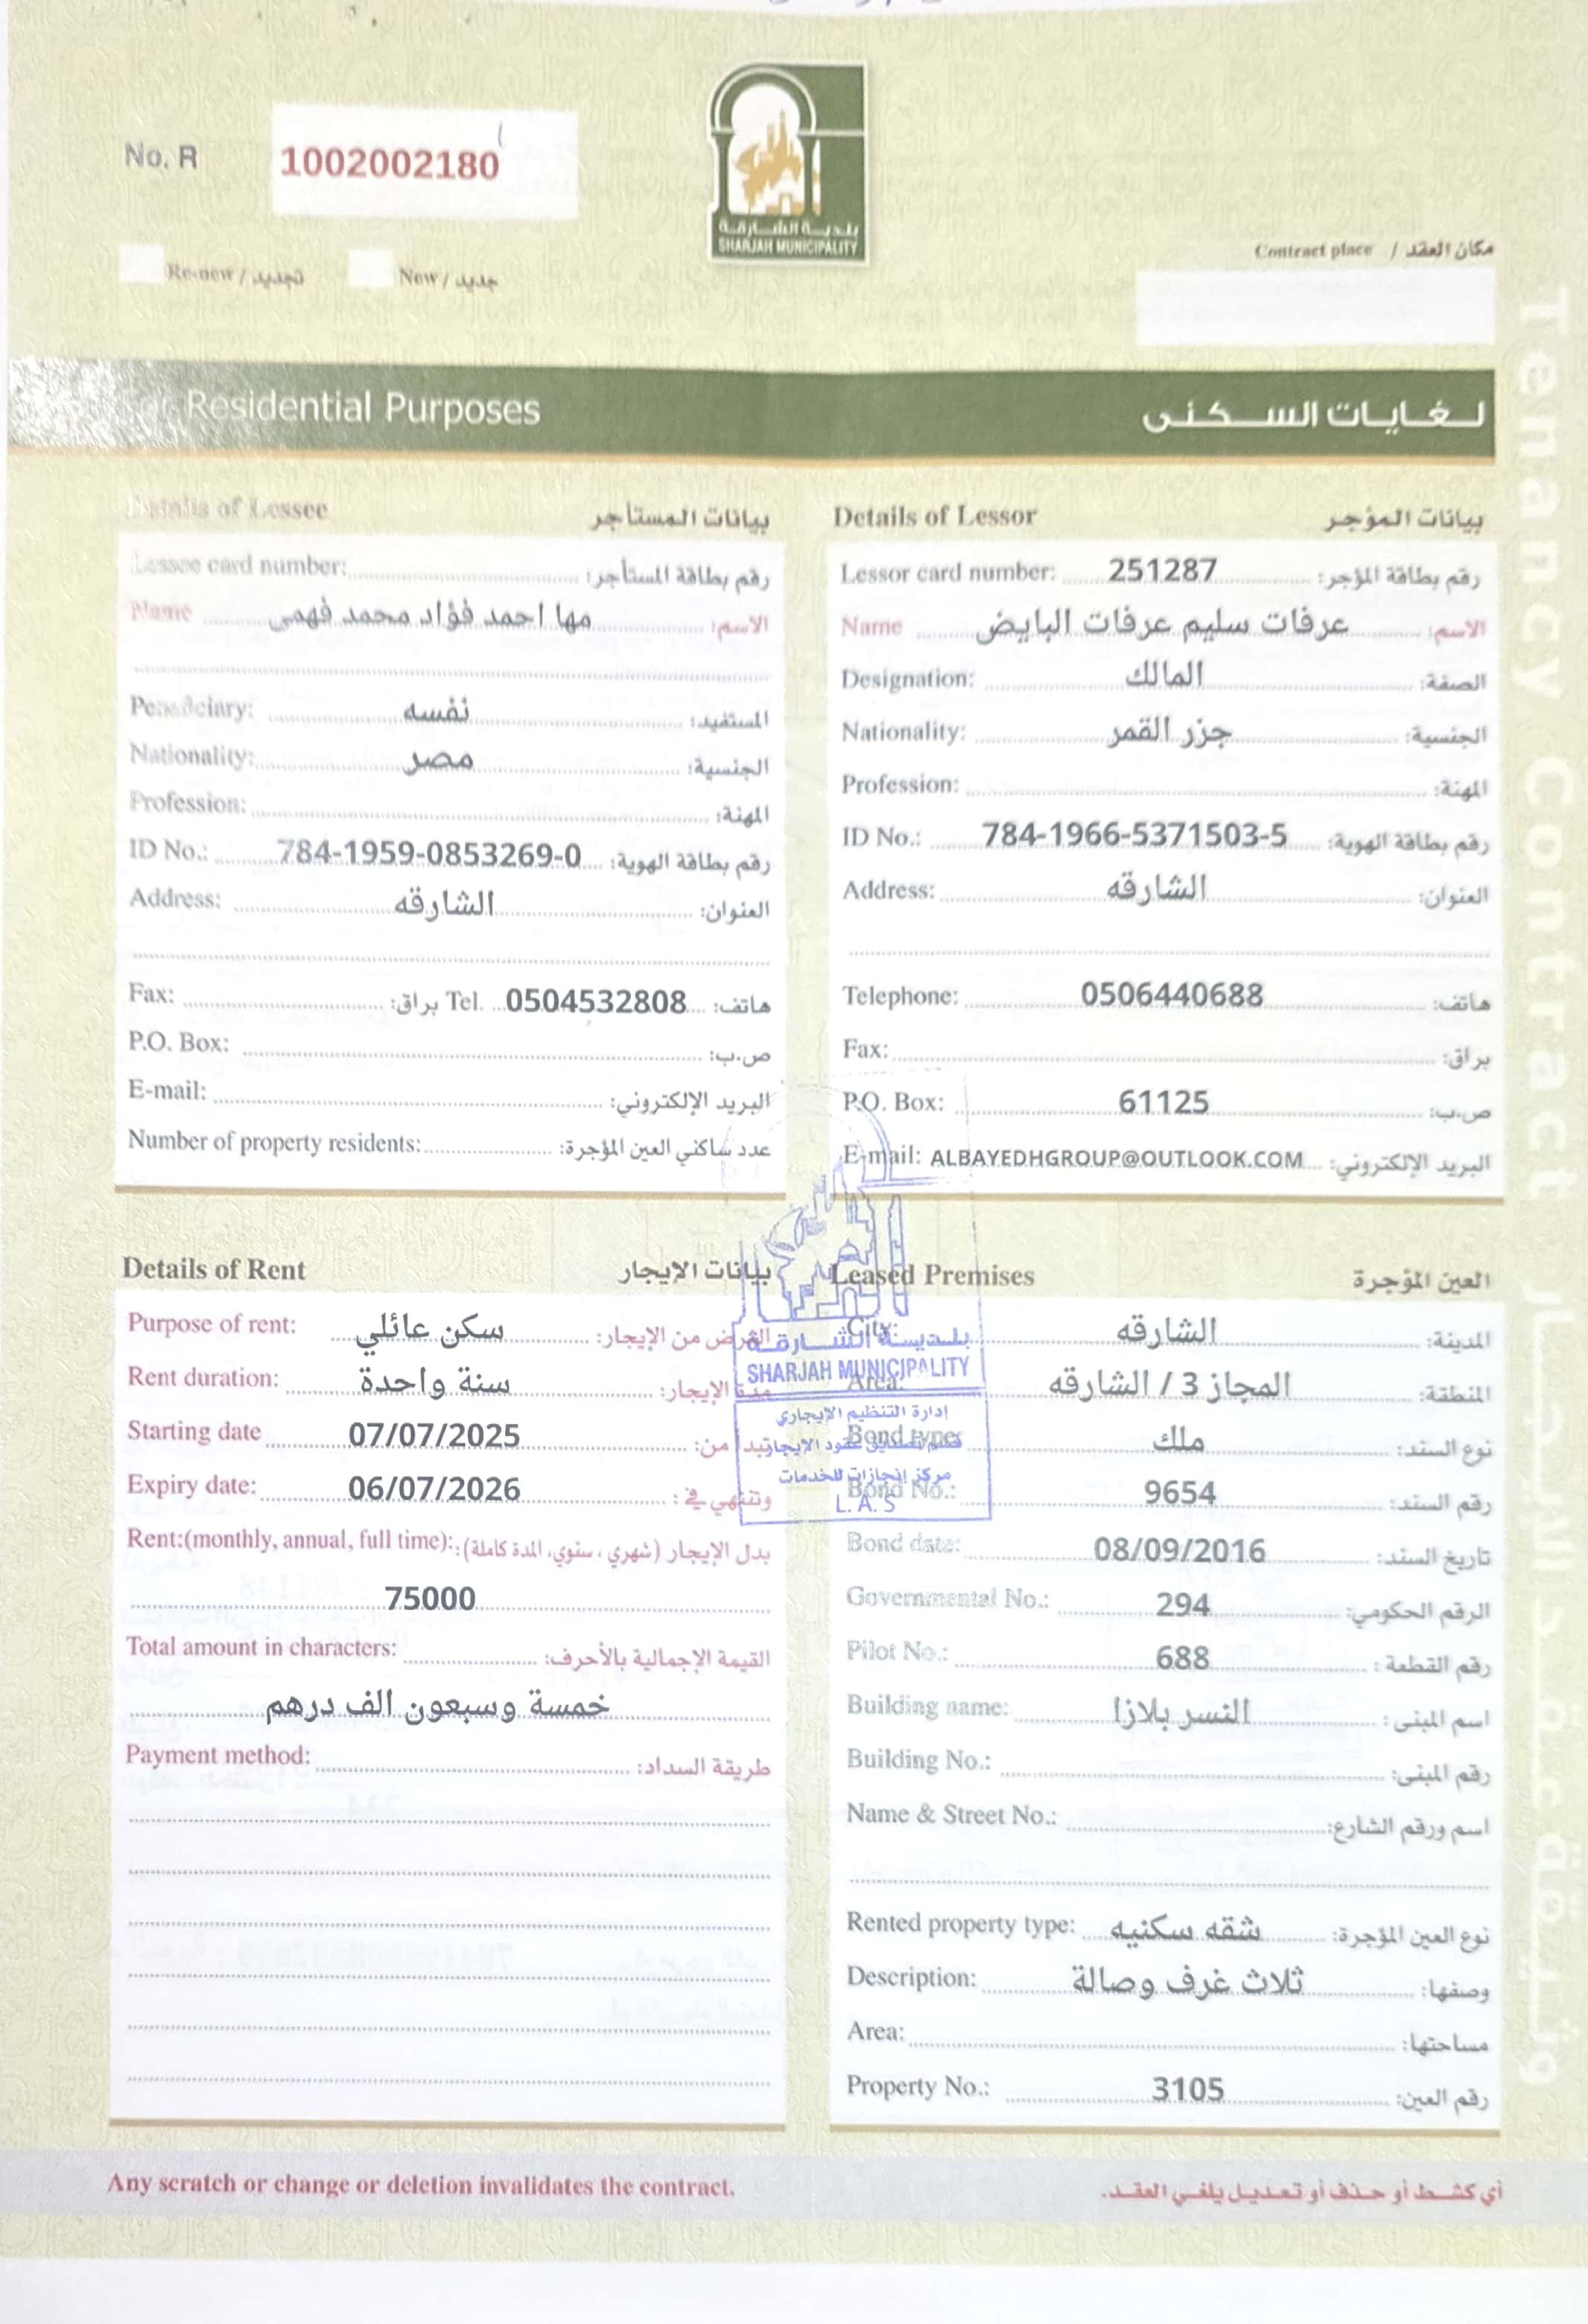 No. R 1002002180
بلدية الشارقة
SHARJAH MUNICIPALITY
Re-new / تجديد New / جديد
Contract place / مكان العقد
Residential Purposes لغايات السكنى
Details of Lessee بيانات المستأجر
Lessee card number: رقم بطاقة المستأجر:
Name مها احمد فؤاد محمد فهمى الاسم:
Beneficiary: نفسه المستفيد:
Nationality: مصر الجنسية:
Profession: المهنة:
ID No.: 784-1959-0853269-0 رقم بطاقة الهوية:
Address: الشارقه العنوان:
Fax: براق: Tel. 0504532808 هاتف:
P.O. Box: ص.ب:
E-mail: البريد الإلكتروني:
Number of property residents: عدد ساكني العين المؤجرة:
Details of Lessor بيانات المؤجر
Lessor card number: 251287 رقم بطاقة المؤجر:
Name عرفات سليم عرفات البايض الاسم:
Designation: المالك الصفة:
Nationality: جزر القمر الجنسية:
Profession: المهنة:
ID No.: 784-1966-5371503-5 رقم بطاقة الهوية:
Address: الشارقه العنوان:
Telephone: 0506440688 هاتف:
Fax: براق:
P.O. Box: 61125 ص.ب:
E-mail: ALBAYEDHGROUP@OUTLOOK.COM البريد الإلكتروني:
Details of Rent بيانات الايجار
Purpose of rent: سكن عائلي الغرض من الإيجار:
Rent duration: سنة واحدة مدة الإيجار:
Starting date 07/07/2025 تبدأ من:
Expiry date: 06/07/2026 وتنتهي في:
Rent:(monthly, annual, full time): بدل الإيجار (شهري، سنوي، المدة كاملة):
75000
Total amount in characters: القيمة الإجمالية بالأحرف:
خمسة وسبعون الف درهم
Payment method: طريقة السداد:
بلدية الشارقة
SHARJAH MUNICIPALITY
إدارة التنظيم الإيجاري
قسم تصديق عقود الايجار
مركز إنجازات للخدمات
L.A.S
Leased Premises العين المؤجرة
City: الشارقه المدينة:
Area: المجاز 3 / الشارقه المنطقة:
Bond type: ملك نوع السند:
Bond No.: 9654 رقم السند:
Bond date: 08/09/2016 تاريخ السند:
Governmental No.: 294 الرقم الحكومي:
Pilot No.: 688 رقم القطعة:
Building name: النسر بلازا اسم المبنى:
Building No.: رقم المبنى:
Name & Street No.: اسم ورقم الشارع:
Rented property type: شقه سكنيه نوع العين المؤجرة:
Description: ثلاث غرف وصالة وصفها:
Area: مساحتها:
Property No.: 3105 رقم العين:
Any scratch or change or deletion invalidates the contract. أي كشط أو حذف أو تعديل يلغي العقد.
Tenancy Contract